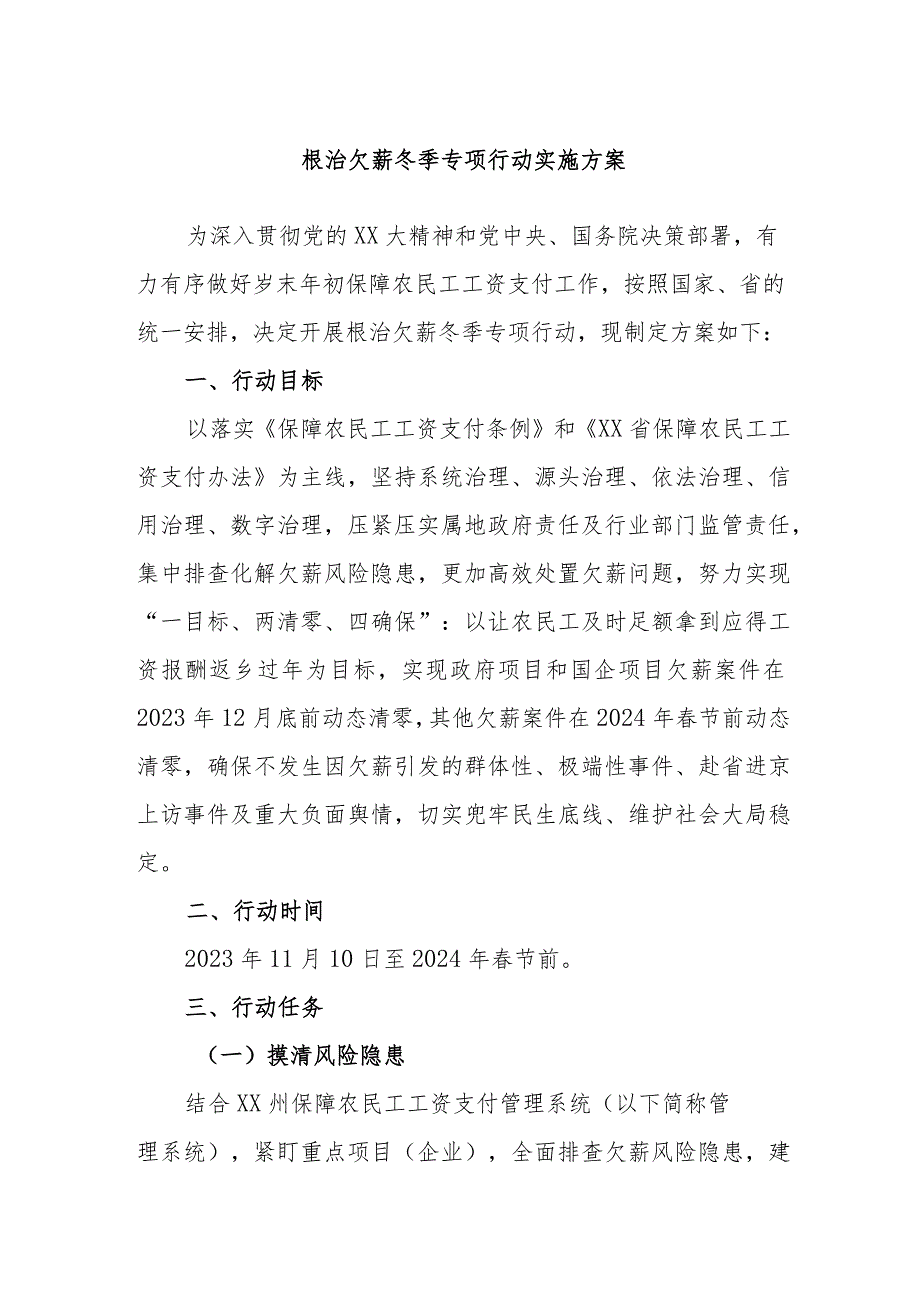 根治欠薪冬季专项行动实施方案
为深入贯彻党的 XX 大精神和党中央、国务院决策部署，有
力有序做好岁末年初保障农民工工资支付工作，按照国家、省的
统一安排，决定开展根治欠薪冬季专项行动，现制定方案如下：
一、行动目标
以落实《保障农民工工资支付条例》和《XX 省保障农民工工
资支付办法》为主线，坚持系统治理、源头治理、依法治理、信
用治理、数字治理，压紧压实属地政府责任及行业部门监管责任，
集中排查化解欠薪风险隐患，更加高效处置欠薪问题，努力实现
“一目标、两清零、四确保”：以让农民工及时足额拿到应得工
资报酬返乡过年为目标，实现政府项目和国企项目欠薪案件在
2023 年 12 月底前动态清零，其他欠薪案件在 2024 年春节前动态
清零，确保不发生因欠薪引发的群体性、极端性事件、赴省进京
上访事件及重大负面舆情，切实兜牢民生底线、维护社会大局稳
定。
二、行动时间
2023 年 11 月 10 日至 2024 年春节前。
三、行动任务
（一）摸清风险隐患
结合 XX 州保障农民工工资支付管理系统（以下简称管
理系统），紧盯重点项目（企业），全面排查欠薪风险隐患，建